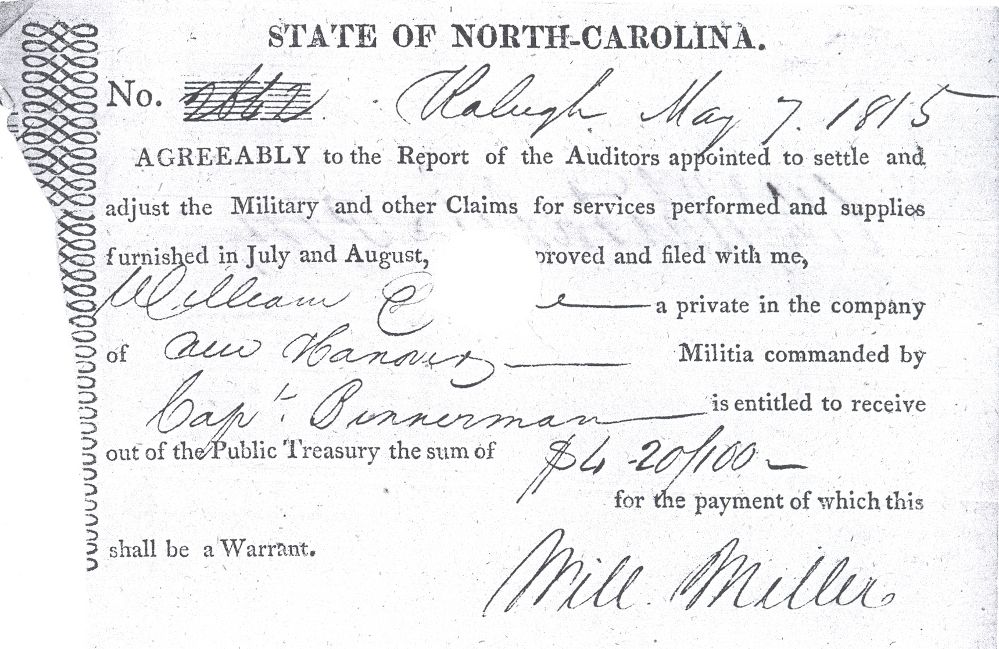 STATE OF NORTH-CAROLINA.
No. 2662. Raleigh May 7. 1815
AGREEABLY to the Report of the Auditors appointed to settle and
adjust the Military and other Claims for services performed and supplies
furnished in July and August, proved and filed with me,
William a private in the company
of New Hanover Militia commanded by
Capt. Binnerman is entitled to receive
out of the Public Treasury the sum of $4 20/100
for the payment of which this
shall be a Warrant.
Will Miller